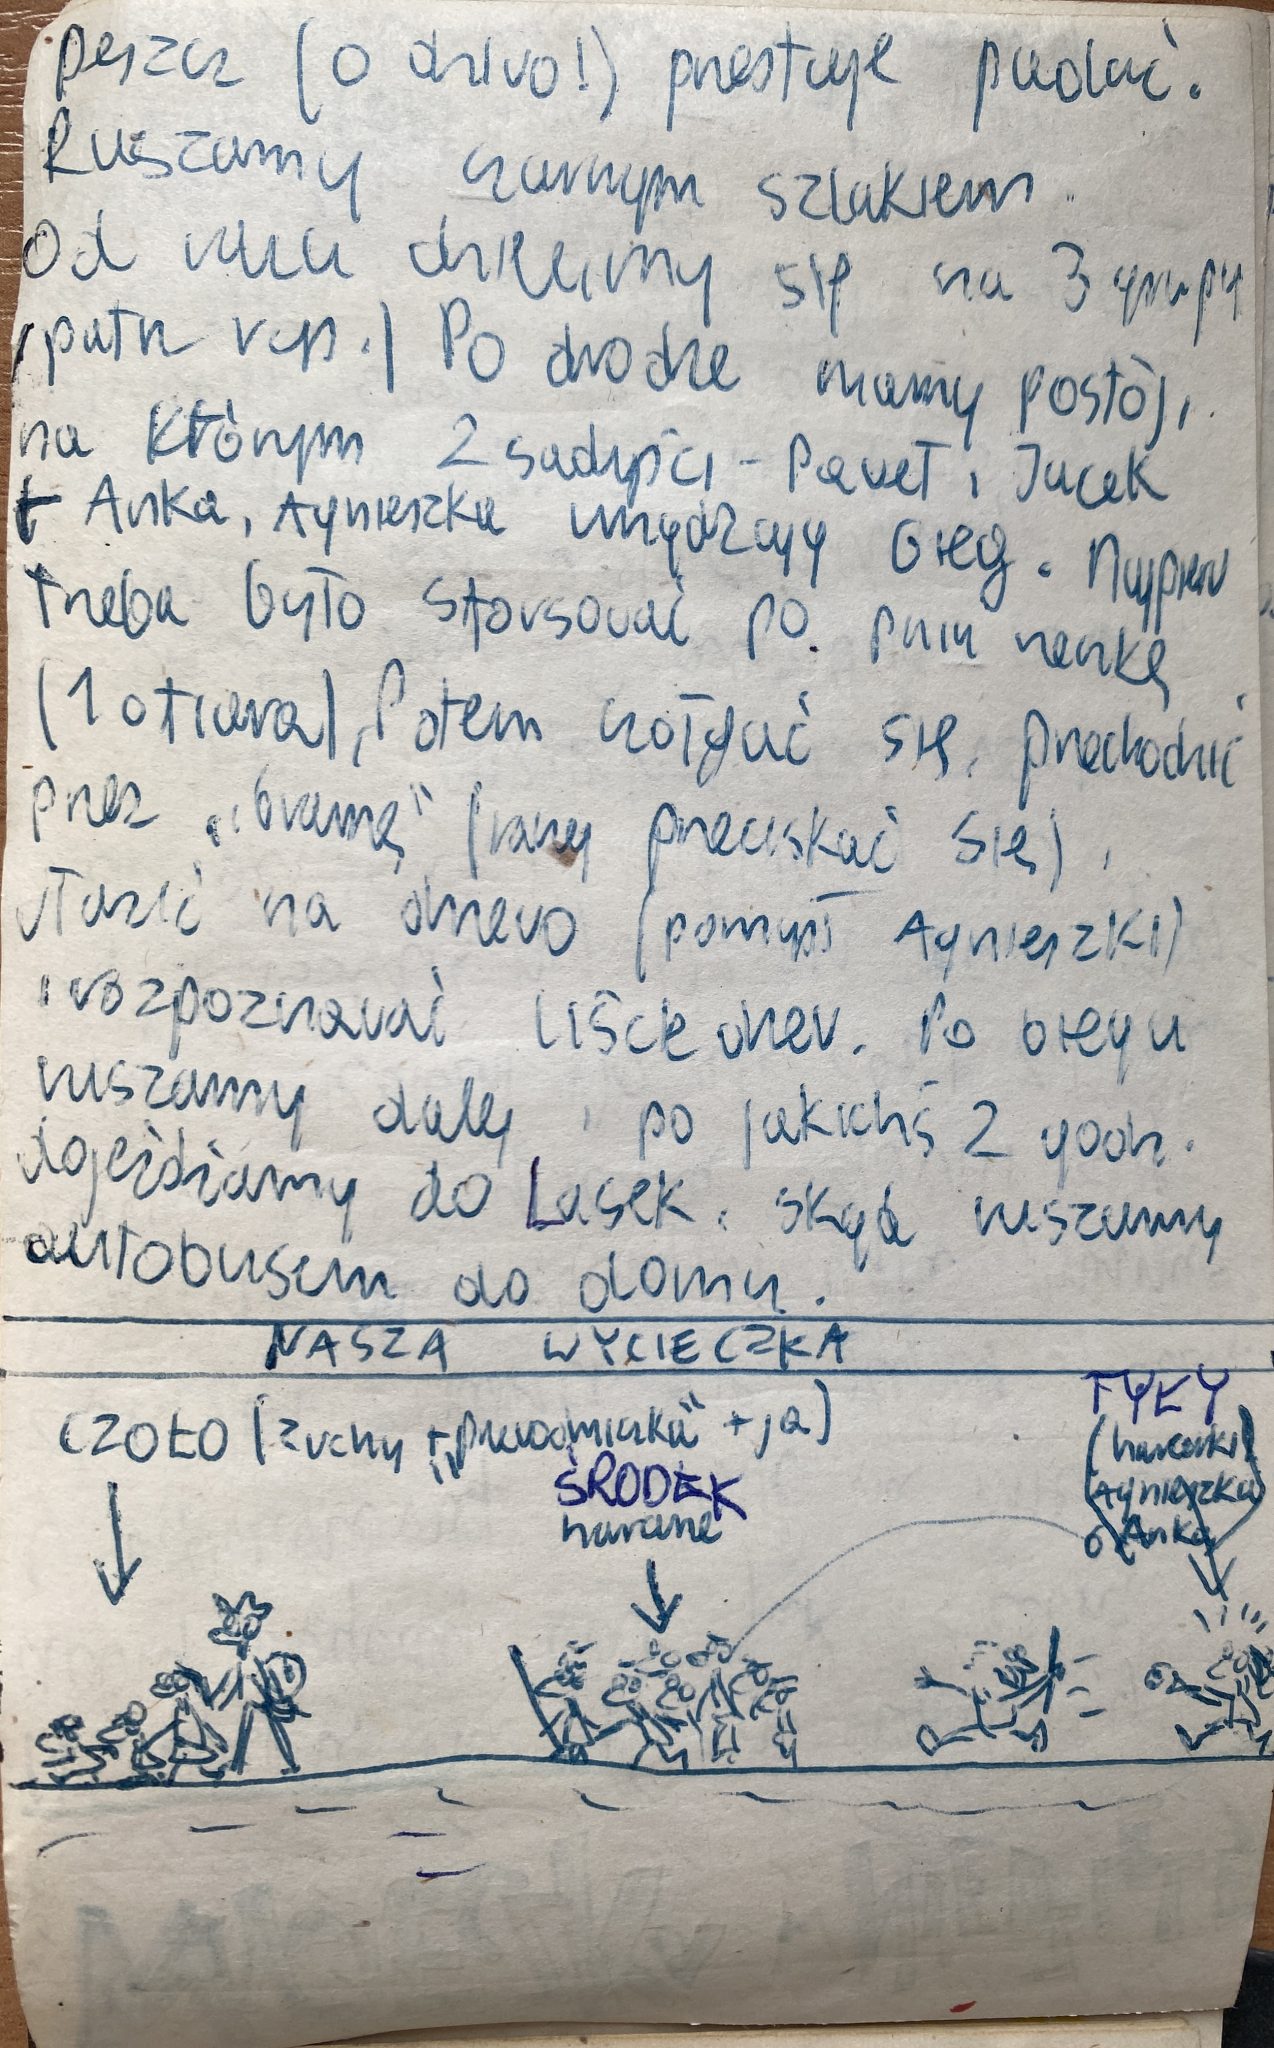 deszcz (o dziwo!) przestaje padać.
Ruszamy czarnym szlakiem.
Od razu dzielimy się na 3 grupy
(patrz rys.) Po drodze mamy postój,
na którym 2 sadyści - Paweł i Jacek
+ Anka, Agnieszka urządzają bieg. Najpierw
trzeba było sforsować po pniu rzeczkę
(1 ofiara), Potem czołgać się, przechodzić
przez „bramę" (raczej przeciskać się),
włazić na drzewo (pomysł Agnieszki)
i rozpoznawać liście drzew. Po biegu
ruszamy dalej i po jakichś 2 godz.
dojeżdżamy do Lasek, skąd ruszamy
autobusem do domu.
NASZA WYCIECZKA
CZOŁO (zuchy + „przewodniczka" + ja)
ŚRODEK
harcerze
TYŁY
(harcerki)
Agnieszka
Anka